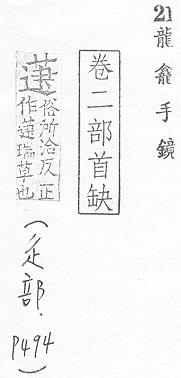 21龍龕手鏡
卷二部首缺
俗所洽反正
作萐瑞草也
(辵部.P494)